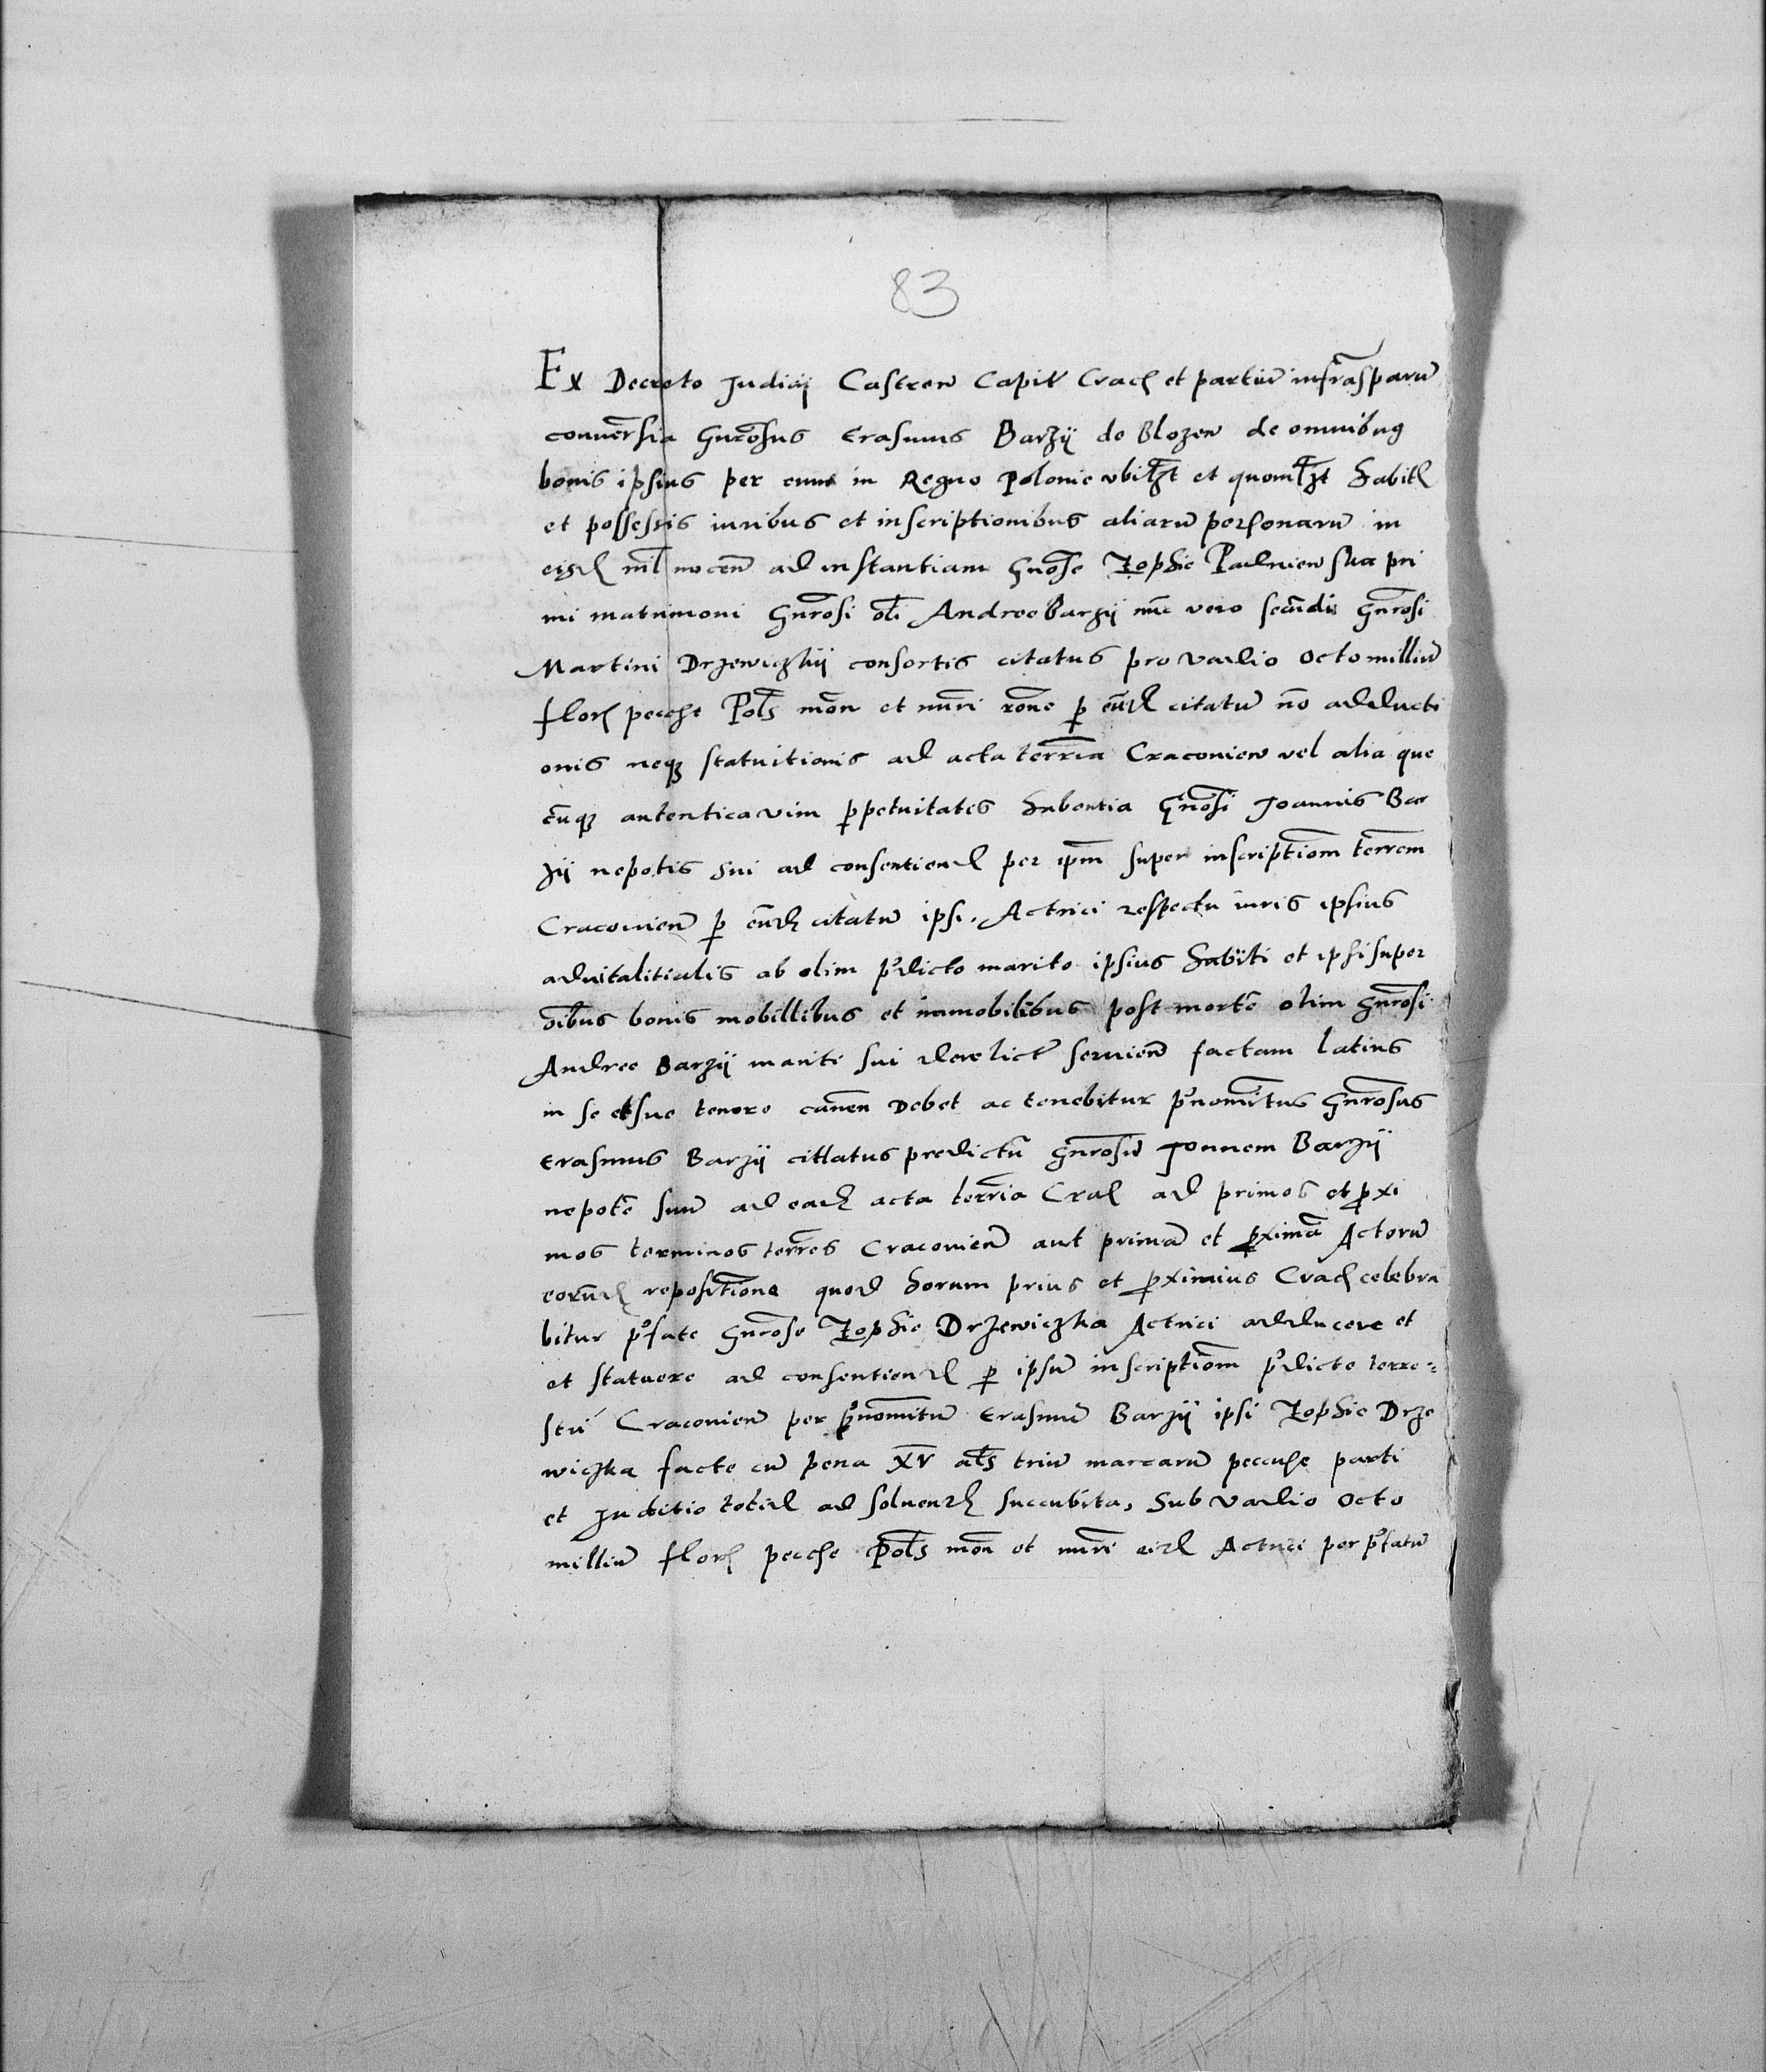 83
Ex Decreto Judicij Castren Capit Crac et partiū infrasparū
conuersia Gnrosus Erasmus Barzij de Blozen de omnibus
bonis ipsius per eum in Regno Polonie vbilȝt et quomlȝt habit
et possessis iuribus et inscriptionibus aliarū personarū in
eisd nil nocen ad instantiam Gnose Zophie Padnien sua pri
mi matrimoni Gnrosi oli Andree Barzij nūc vero secūdi Gnrosi
Martini Drzewiczkij consortis citatus pro vadio octo milliū
flor pecche Pols mon et nūri rone p eūd citatū nō adducti
onis neqȝ statuitionis ad acta terria Cracouien vel alia que
cūqȝ autentica vim ppetuitates habentia Gnosi Joannis Bar
zij nepotis sui ad consentiend per ipm super inscriptiom terrem
Cracouien p eūd citatū ipsi Actrici respectu iuris ipsius
aduitalitialis ab olim pdicto marito ipsius habiti et ipsi super
oibus bonis mobillibus et inmobilibus post mortē olim Gnrosi
Andree Barzij mariti sui derelict seruien factam latius
in se et suo tenore canen Debet ac tenebitur pnomitus Gnrosus
Erasmus Barzij citlatus predictū Gnrosū Jonnem Barzij
nepotē suū ad ead acta terria Crac ad primos et pxi
mos terminos terres Cracouien aut primā et pximā Actorū
eorūd repositione quod horum prius et pximius Crac celebra
bitur pfate Gnrose Zophie Drzewiczka Actrici adducere et
et statuere ad consentiend p ipsū inscriptiom pdicte terre=
stri Cracouien per pnomitū Erasmū Barzij ipsi Zophie Drze
wiczka facte cū pena XV als triū marcarū peccuhe parti
et Juditio totid ad soluend succubita, Sub vadio Octo
milliū flor pecche Pols mon et nūri eid Actrici per pfatū